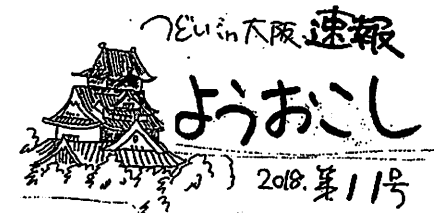 つどい in 大阪 速報
ようおこし
2018. 第11号